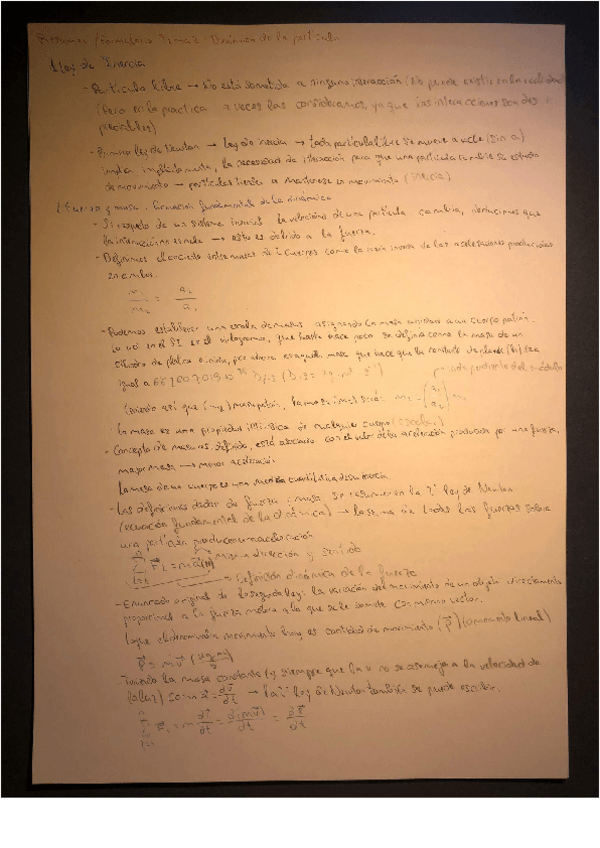 Resumen/Formulario Tema 2: Dinámica de la partícula
1 Ley de Inercia
- Partícula libre → No está sometida a ninguna interacción (No puede existir en la realidad)
(Pero en la práctica a veces las consideramos, ya que las interacciones son des
preciables)
- Primera ley de Newton → Ley de inercia → toda partícula libre se mueve a v cte (sin a)
implica implícitamente, la necesidad de interacción para que una partícula cambie su estado
de movimiento → partículas tienden a mantenerse en movimiento (inercia)
2 Fuerza y masa. Ecuación fundamental de la dinámica
- Si respecto de un sistema inercial la velocidad de una partícula cambia, deducimos que
la interacción → esto es debido a la fuerza.
- Definimos el cociente entre masas de 2 cuerpos como la razón inversa de las aceleraciones producidas
en ambos.
m₁/m₂ = a₂/a₁
- Podemos establecer una escala de masas asignando la masa unidad a un cuerpo patrón.
La ud en el SI es el kilogramo, que hasta hace poco se definía como la masa de un
cilindro de platino e iridio, pero ahora es aquella masa que hace que la constante de planck (h) sea
igual a
(siendo así que (m₁) masa patrón, la masa (m₂) será: m₂ = (a₁/a₂) m₁
La masa es una propiedad intrínseca de cualquier cuerpo (escalar)
- Concepto de masa es definido, está asociado con el valor de la aceleración producida por una fuerza,
mayor masa → menor aceleración
La masa de un cuerpo es una medida cuantitativa de su inercia
- Las definiciones dadas de fuerza y masa se resumen en la 2ª ley de Newton
(ecuación fundamental de la dinámica) → La suma de todas las fuerzas sobre
una partícula produce una aceleración
misma dirección y sentido
= Definición dinámica de la fuerza
- Enunciado original de la segunda ley: la variación del movimiento de un objeto es directamente
proporcional a la fuerza motriz a la que se le somete como vector.
Lo que el denominaba movimiento hoy es cantidad de movimiento (p⃗) (momento lineal)
p⃗ = mv⃗
- Tomando la masa constante (y siempre que la v no se asemeje a la velocidad de
la luz) como a⃗ = dv⃗/dt → La 2ª ley de Newton también se puede escribir.
Σ F⃗ᵢ = m dv⃗/dt = d(mv⃗)/dt = dp⃗/dt